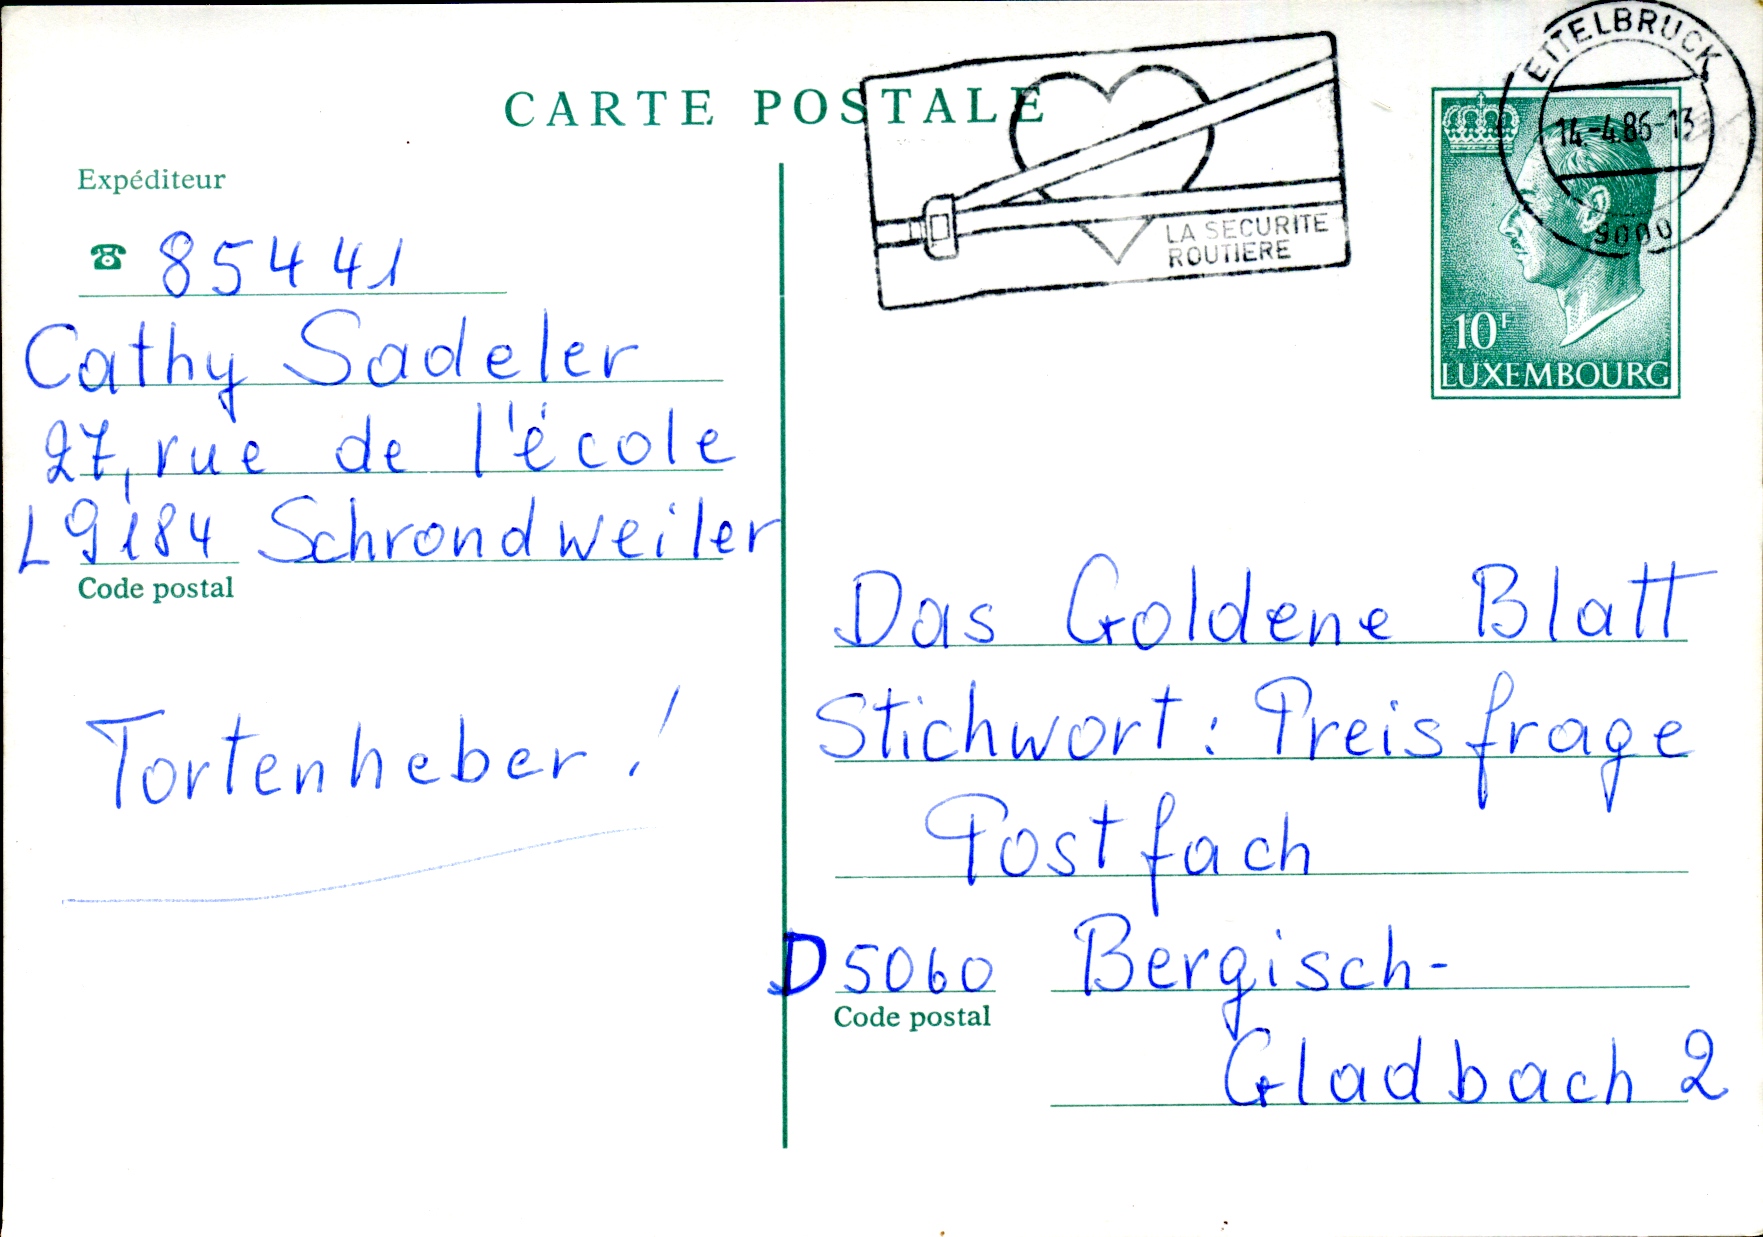 CARTE POSTALE
Expéditeur
☎ 85441
Cathy Sadeler
27, rue de l'école
L 9184 Schrondweiler
Code postal
Tortenheber!
LA SECURITE
ROUTIERE
ETTELBRUCK
14.-4.86-13
9000
10F
LUXEMBOURG
Das Goldene Blatt
Stichwort: Preisfrage
Postfach
D 5060 Bergisch-
Code postal
Gladbach 2